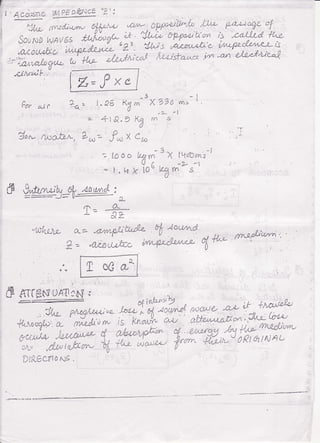 ACOUSTIC IMPEDANCE "Z":
The medium offers an opposition to the passage of
SOUND WAVES through it. This opposition is called the
acoustic impedance "Z". This acoustic impedance is
analogue to the electrical resistance in an electrical
circuit.
Z = ρ × c
For air Za = 1.25 Kg m⁻³ × 330 ms⁻¹.
= 412.5 Kg m⁻² s⁻¹
For water, Zw = ρw × Cw
= 1000 kg m⁻³ × 1400 ms⁻¹
= 1.4 × 10⁶ kg m⁻² s⁻¹.
Intensity of sound :
I = a² / 2Z
where a = amplitude of sound
Z = acoustic impedance of the medium.
∴ I ∝ a²
ATTENUATION :
The progressive loss of intensity of sound wave as it travels
through a medium is known as attenuation. The loss
occurs because of absorption of energy by the medium
or deviation of the waves from their ORIGINAL
DIRECTIONS.